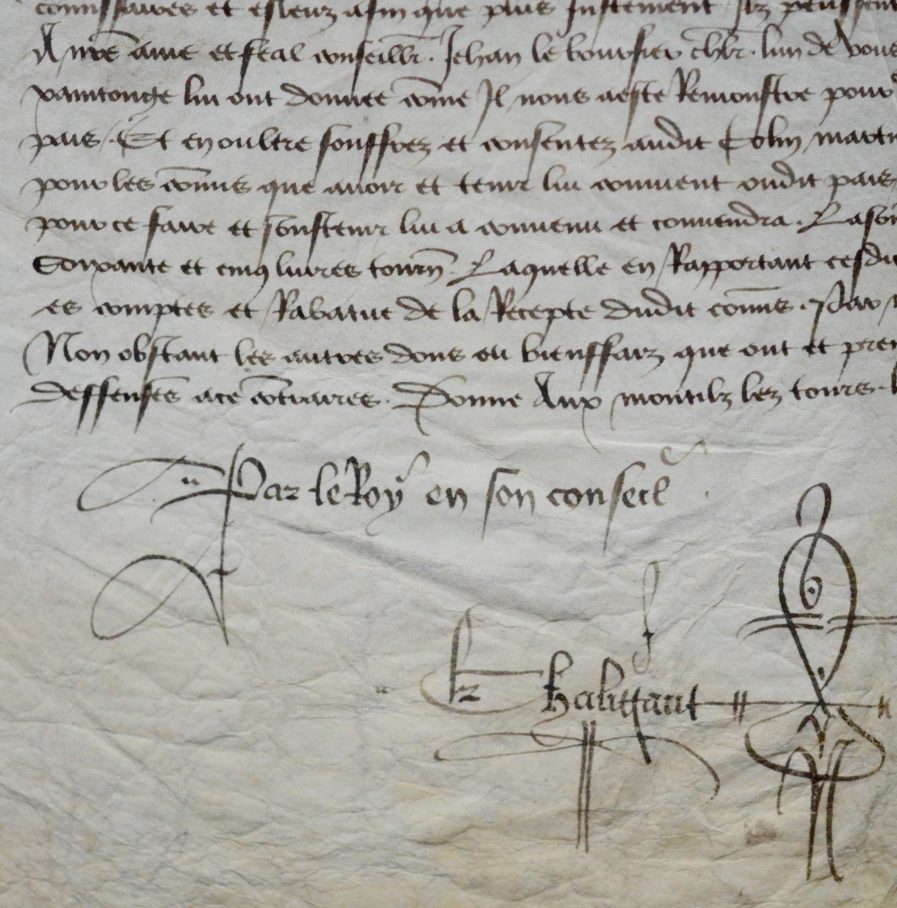 commissaires et esleuz afin que plus justement ilz peussent
A nre ame et feal conseillr. Jehan le boursier chlr. lun de vous
xaintonge lui ont donnee come Il nous a este Remonstre pour
pais. Et en oultre souffrez et consentez audit Colin mart
pour les comis que avoir et tenir lui convient oudit pais
pour ce faire et soustenir lui a convenu et convendra. La
Soixante et cinq livres tourn. Laquelle en Rapportant cesd
es comptes et Rabatue de la Recepte dudit comis. Par
Non obstant les autres dons ou bienffaiz que ont et pre
deffenses a ce contraires. Donne Aux montilz lez tours.
Par le Roy en son conseil